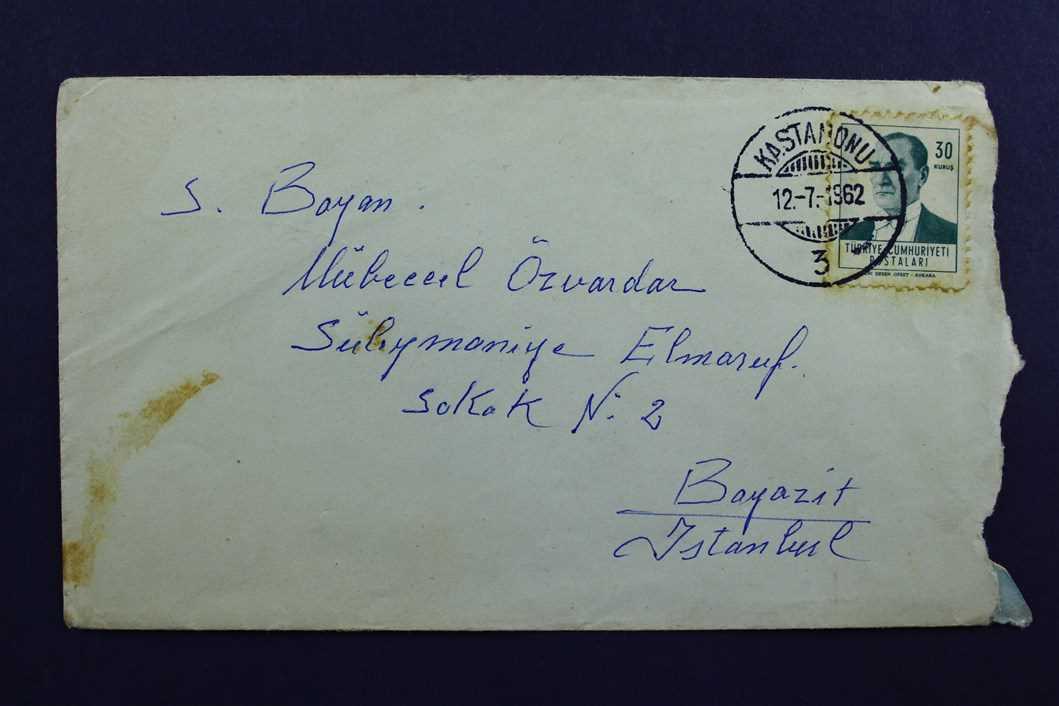 KASTAMONU
12.-7.-1962
3
30
KURUŞ
TÜRKİYE CUMHURİYETİ
POSTALARI
S. Bayan.
Mübeccel Özvardar
Süleymaniye Elmaruf.
Sokak N: 2
Bayazit
Istanbul